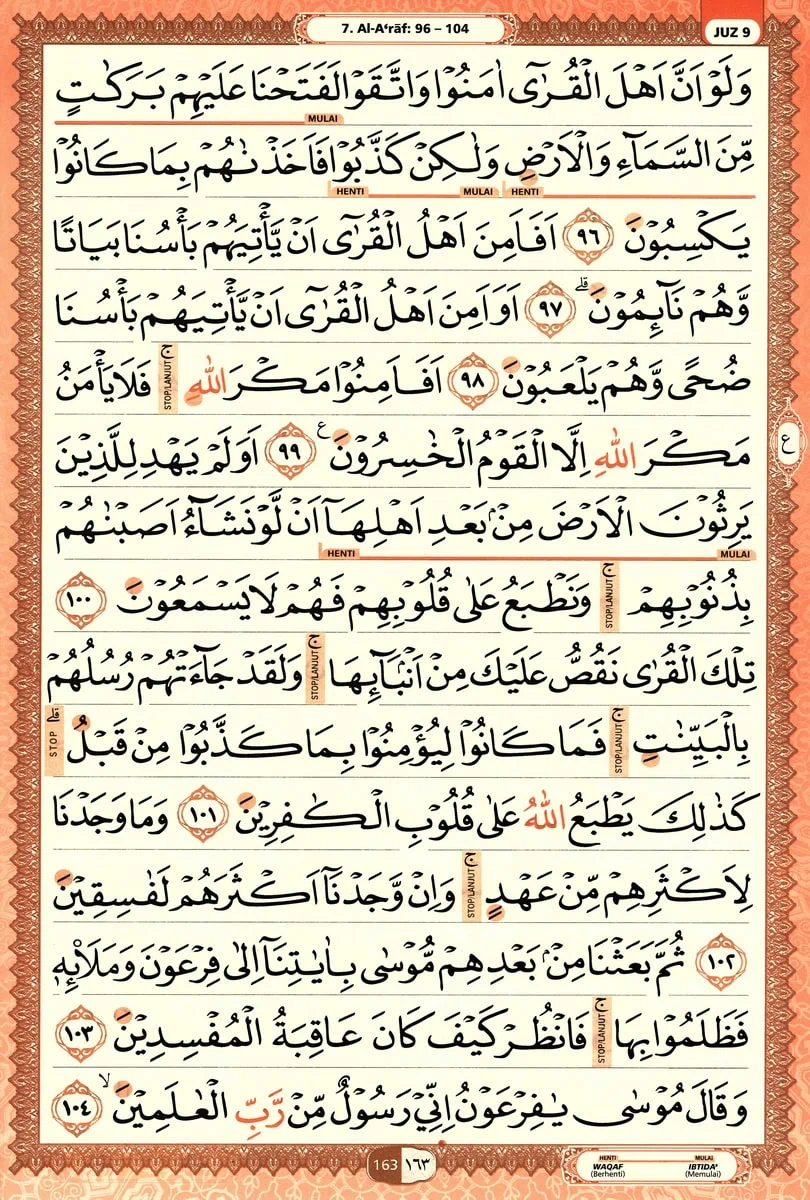 7. Al-A‘rāf: 96 – 104
JUZ 9
وَلَوْ اَنَّ اَهْلَ الْقُرٰٓى اٰمَنُوْا وَاتَّقَوْا لَفَتَحْنَا عَلَيْهِمْ بَرَكٰتٍ
MULAI
مِّنَ السَّمَاۤءِ وَالْاَرْضِ وَلٰكِنْ كَذَّبُوْا فَاَخَذْنٰهُمْ بِمَا كَانُوْا
HENTI MULAI HENTI
يَكْسِبُوْنَ ٩٦ اَفَاَمِنَ اَهْلُ الْقُرٰٓى اَنْ يَّأْتِيَهُمْ بَأْسُنَا بَيَاتًا
وَّهُمْ نَاۤىِٕمُوْنَ ۗ ٩٧ اَوَاَمِنَ اَهْلُ الْقُرٰٓى اَنْ يَّأْتِيَهُمْ بَأْسُنَا
ضُحًى وَّهُمْ يَلْعَبُوْنَ ٩٨ اَفَاَمِنُوْا مَكْرَ اللّٰهِ ۚ STOP/LANJUT فَلَا يَأْمَنُ
مَكْرَ اللّٰهِ اِلَّا الْقَوْمُ الْخٰسِرُوْنَ ع ٩٩ اَوَلَمْ يَهْدِ لِلَّذِيْنَ
ع
يَرِثُوْنَ الْاَرْضَ مِنْۢ بَعْدِ اَهْلِهَآ اَنْ لَّوْ نَشَاۤءُ اَصَبْنٰهُمْ
HENTI MULAI
بِذُنُوْبِهِمْ ۚ STOP/LANJUT وَنَطْبَعُ عَلٰى قُلُوْبِهِمْ فَهُمْ لَا يَسْمَعُوْنَ ١٠٠
تِلْكَ الْقُرٰى نَقُصُّ عَلَيْكَ مِنْ اَنْۢبَاۤىِٕهَا ۚ STOP/LANJUT وَلَقَدْ جَاۤءَتْهُمْ رُسُلُهُمْ
بِالْبَيِّنٰتِ ۚ STOP/LANJUT فَمَا كَانُوْا لِيُؤْمِنُوْا بِمَا كَذَّبُوْا مِنْ قَبْلُ ۗ STOP
كَذٰلِكَ يَطْبَعُ اللّٰهُ عَلٰى قُلُوْبِ الْكٰفِرِيْنَ ١٠١ وَمَا وَجَدْنَا
لِاَكْثَرِهِمْ مِّنْ عَهْدٍ ۚ STOP/LANJUT وَاِنْ وَّجَدْنَآ اَكْثَرَهُمْ لَفٰسِقِيْنَ
١٠٢ ثُمَّ بَعَثْنَا مِنْۢ بَعْدِهِمْ مُّوْسٰى بِاٰيٰتِنَآ اِلٰى فِرْعَوْنَ وَمَلَا۟ىِٕهٖ
فَظَلَمُوْا بِهَا ۚ STOP/LANJUT فَانْظُرْ كَيْفَ كَانَ عَاقِبَةُ الْمُفْسِدِيْنَ ١٠٣
وَقَالَ مُوْسٰى يٰفِرْعَوْنُ اِنِّيْ رَسُوْلٌ مِّنْ رَّبِّ الْعٰلَمِيْنَ ۙ ١٠٤
163 ١٦٣
HENTI MULAI
WAQAF IBTIDA'
(Berhenti) (Memulai)